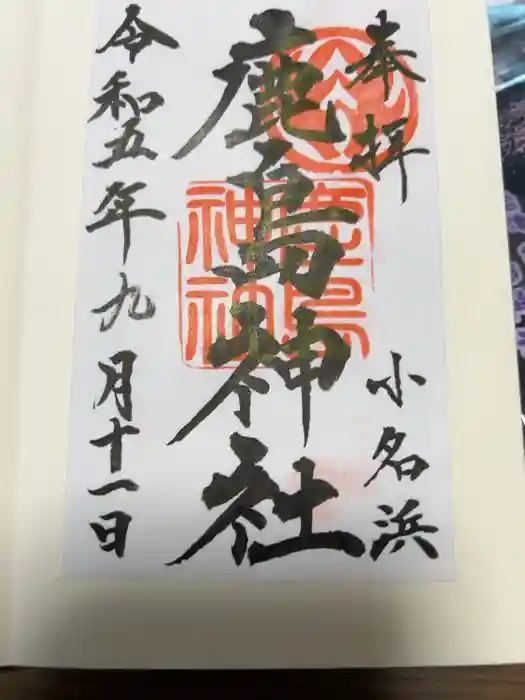 奉拝
小名浜
鹿島神社
令和五年九月十一日